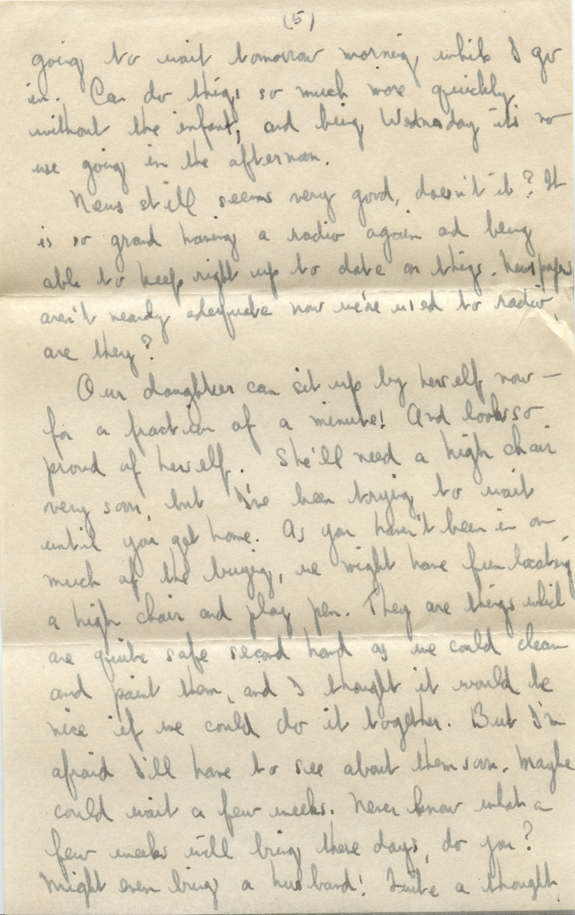 (5)
going to wait tomorrow morning while I go
in. Can do things so much more quickly
without the infant, and being Wednesday it's no
use going in the afternoon.
News still seems very good, doesn't it? It
is so grand having a radio again and being
able to keep right up to date on things. Newspapers
aren't nearly adequate now we're used to radio,
are they?
Our daughter can sit up by herself now —
for a fraction of a minute! And looks so
proud of herself. She'll need a high chair
very soon, but I've been trying to wait
until you get home. As you haven't been in on
much of the buying, we might have fun locating
a high chair and play pen. They are things which
are quite safe second hand as we could clean
and paint them, and I thought it would be
nice if we could do it together. But I'm
afraid I'll have to see about them soon. Maybe
could wait a few weeks. Never know what a
few weeks will bring these days, do you?
Might even bring a husband! Quite a thought